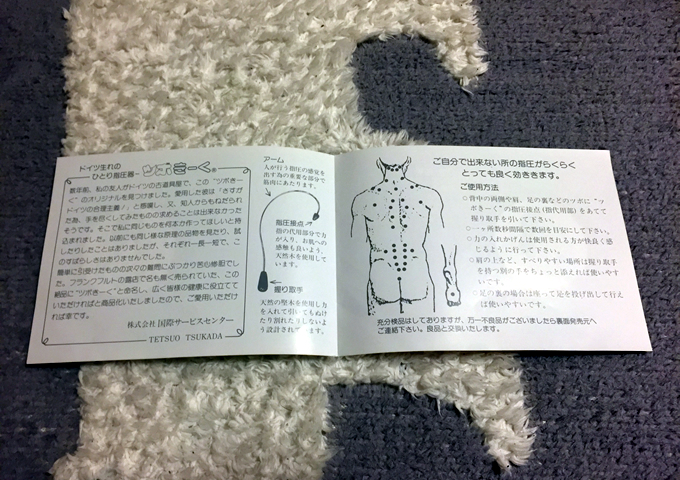 ドイツ生れの
ひとり指圧器~ ツボきーく®
数年前、私の友人がドイツの古道具屋で、この"ツボきー
く"のオリジナルを見つけました。愛用した彼は「さすが
ドイツの合理主義!」と感激し、又、知人からもねだられ
た為、手を尽くしてみたものの求めることは出来なかった
そうです。そこで私に同じものを何本か作ってほしいと持
込まれました。以前にも同じ様な原理の品物を見たり、試
したりしたことはありましたが、それぞれ一長一短で、こ
のすばらしさはありませんでした。
簡単に引受けたものの次々の難問にぶつかり苦心惨胆でし
た。フランクフルトの露店で名も無く売られていた、この
絶品に"ツボきーく"と命名し、広く皆様の健康に役立てて
いただければと商品化いたしましたので、ご愛用いただけ
れば幸です。
株式会社 国際サービスセンター
TETSUO TSUKADA
アーム
人が行う指圧の感覚を
出す為の重要な部分で
筋肉にあたります。
指圧接点
指の代用部分で力
が入り、お肌への
感触も良いよう、
天然木を使用して
います。
握り取手
天然の堅木を使用し力
を入れて引いてもぬけ
たり割れたりしないよ
う設計されて
ご自分で出来ない所の指圧がらくらく
とっても良く効ききます。
ご使用方法
○背中の両側や肩、足の裏などのツボに"ツボ
きーく"の指圧接点(指代用部)をあてて
握り取手を引いて下さい。
○一ヶ所数秒間隔で数回を目安にして下さい。
○力の入れかげんは使用される方が快良く感
じるように行って下さい。
○肩の上など、すべりやすい場所は握り取手
を持つ別の手でちょっと添えれば使いやす
いです。
○足の裏の場合は座って足を投げ出して行え
ば使いやすいです。
充分検品はしておりますが、万一不良品がございましたら裏面発売元へ
ご連絡下さい。良品と交換いたします。